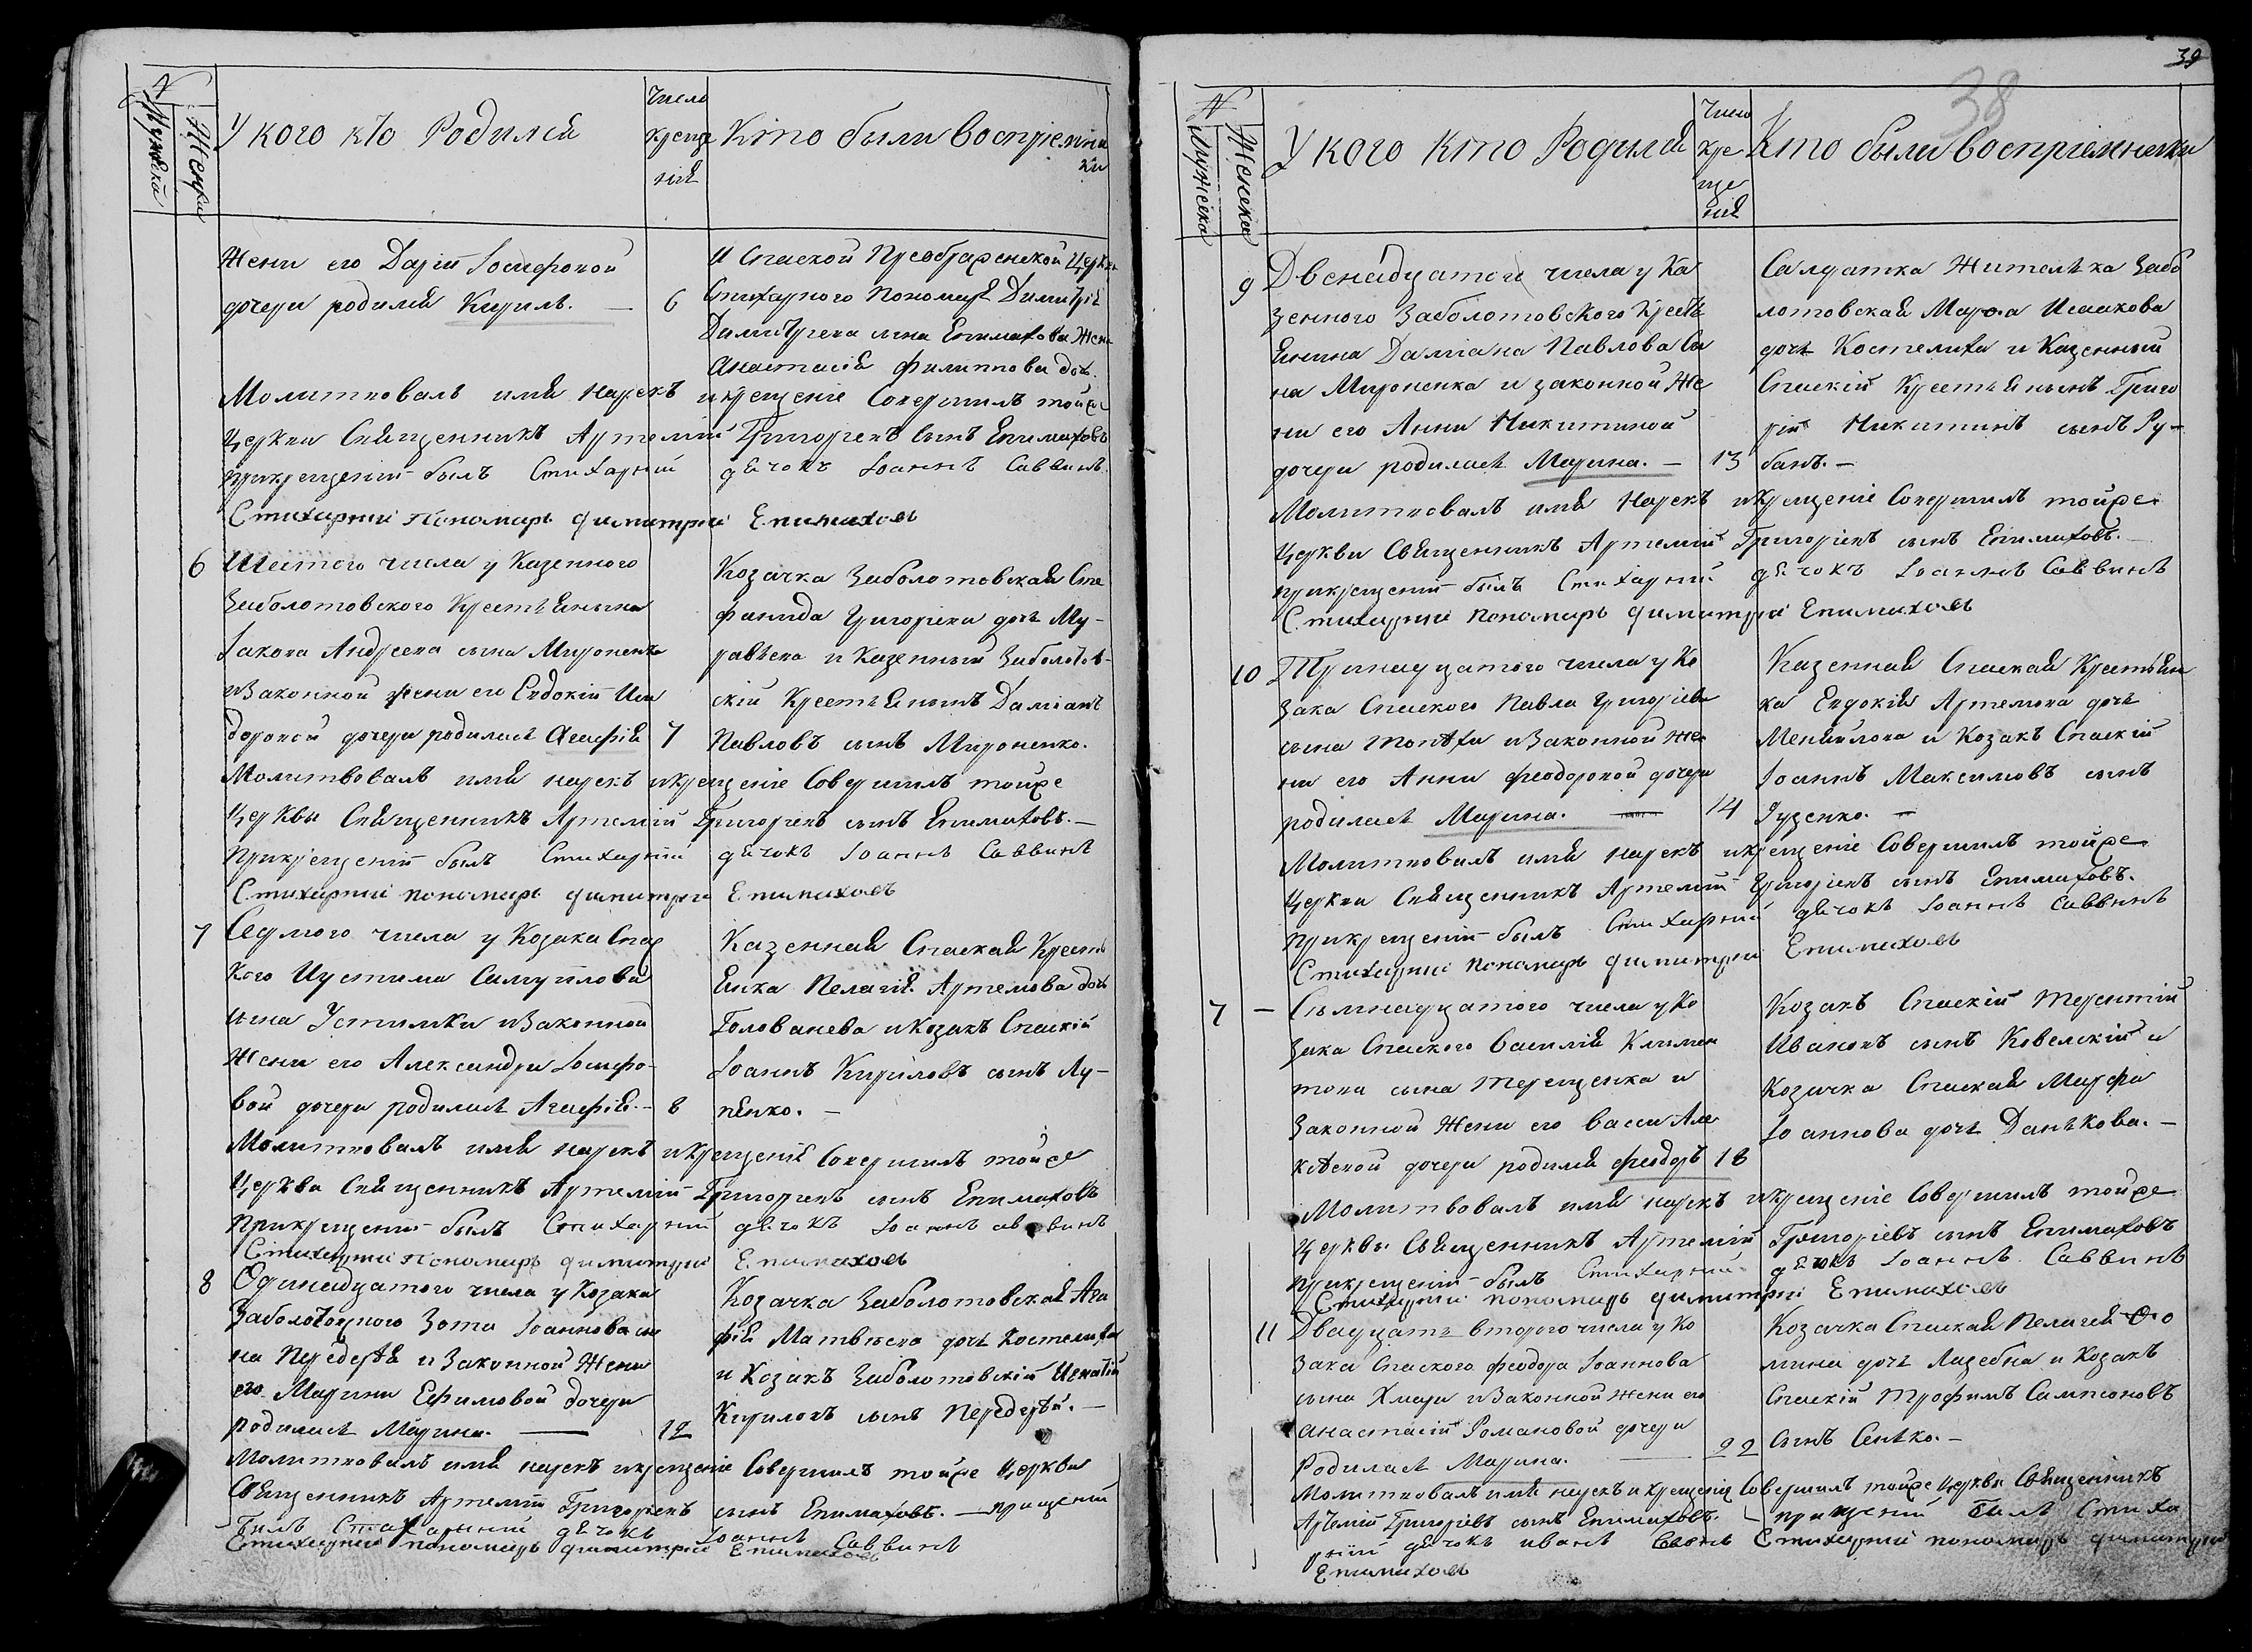 N
Мужеска
Женска
У кого кто Родился
Число
креще
нія
Кто были воспріемни
ки
Жени его Даріи Іосифовой
дочери родился Кирилъ. — 6
И Спаской Преображенской Церкви
Стихарного Пономаря Димитрія
Димитріева сина Епимахова Жена
Анастасія Филиппова дочь.
Молитвовалъ имя нарекъ и крещеніе Совершилъ тойже
Церкви Священникъ Артемий Григориевъ сынъ Епимаховъ
при крещеніи былъ Стихарний дячокъ Іоаннъ Саввинъ.
Стихарний пономарь Димитрий Епимаховъ
6
Шестого числа у Казенного
Заболотовского Крестьянина
Іакова Андреева сына Мироненка
и Законной жени его Евдокіи Иси
доровой дочери родилась Агафія 7
Козачка Заболотовская Сте
фанида Григориева дочь Му-
равьева и Казенный Заболотов-
скій Крестьянинъ Даміанъ
Павловъ сынъ Мироненко.
Молитвовалъ имя нарекъ и крещеніе Совершилъ тойже
Церквы Священникъ Артемій Григориевъ сынъ Епимаховъ. —
При крещеніи былъ Стихарній дячокъ Іоаннъ Саввинъ
Стихарний пономарь Димитрий Епимаховъ
7
Седмого числа у Козака Спас
кого Иустима Самуйлова
сына Устимка и Законной
Жени его Александри Іосифо-
вой дочери родилась Агафія. — 8
Казенная Спаская Кресть
янка Пелагія Артемова дочь
Голованева и Козакъ Спаскій
Іоаннъ Кириловъ сынъ Лу-
пенко. —
Молитвовалъ имя нарекъ и крещенія Совершилъ тойже
Церкви Священникъ Артемій Григориевъ сынъ Епимаховъ
При крещении былъ Стихарний дячокъ Іоаннъ Саввинъ
Стихарний Пономарь Димитрий Епимаховъ
8
Одинадцатого числа у Козака
Заболотцкого Зота Іоаннова сы
на Передерѣя и Законной Жени
его Марини Ефимовой дочери
родилась Марина. — 12
Козачка Заболотовская Ага
фія Матвѣева дочь Костелиха
и Козакъ Заболотовскій Игнатій
Кириловъ сынъ Передерѣй. —
Молитвовалъ имя нарекъ и крещеніе Совершилъ тойже Церкви
Священникъ Артемій Григориевъ сынъ Епимаховъ. — прищеній
билъ Стихарний дячокъ Іоаннъ Саввинъ
Стихарний пономарь Димитрий Епимаховъ
39
38
N
Мужеска
Женска
У кого кто Родился
Число
кре
ще
нія
Кто были воспріемники
9
Двенадцатого числа у Ка
зенного Заболотовского Кресть
янина Даміана Павлова Си
на Мироненка и законной Же
ни его Анни Никитиной
дочери родилась Марина. — 13
Салдатка Жителька Забо
лотовская Марѳа Исаакова
дочь Костелиха и Казенный
Спаскій Крестьянинъ Григо
рій Никитинъ сынъ Ру-
банъ. —
Молитвовалъ имя нарекъ и крещеніе Совершилъ тойже
Церкви Священникъ Артемій Григориевъ сынъ Епимаховъ. —
при крещеніи былъ Стихарний дячокъ Іоаннъ Саввинъ
Стихарний пономарь Димитрий Епимаховъ
10
Тринадцатого числа у Ко
зака Спаского Павла Григоріева
сына и Законной Же
ни его Анни Феодоровой дочери
родилась Марина. — 14
Казенная Спаская Крестьян
ка Евдокія Артемова дочь
Менайлова и Козакъ Спаскій
Іоаннъ Максимовъ сынъ
Гузенко. —
Молитвовалъ имя нарекъ и крещеніе Совершилъ тойже
Церкви Священникъ Артемій Григориевъ сынъ Епимаховъ.
при крещеніи былъ Стихарний дячокъ Іоаннъ Саввинъ
Стихарний пономарь Димитрии Епимаховъ
7 —
Сьмнадцатого числа у Ко
зака Спаского Василія Климен
това сына Терещенка и
Законной Жени его Васси Але
ксѣевой дочери родился Феодоръ 18
Козакъ Спаскій Терентій
Ивановъ сынъ Ковелскій и
Козачка Спаская Марфа
Іоаннова дочь Данькова. —
Молитвовалъ имя нарекъ и крещеніе Совершилъ тойже
Церквы Священникъ Артемій Григоріевъ сынъ Епимаховъ
при крещеніи былъ Стихарний дячокъ Іоаннъ Саввинъ
Стихарний пономарь Димитрий Епимаховъ
11
Двадцать второго числа у Ко
зака Спаского Феодора Іоаннова
сына Хмари и Законной Жени его
Анастасіи Романовой дочери
Родилась Марина. — 22
Козачка Спаская Пелагея Ѳо
мина дочь Лазебна и Козакъ
Спаскій Трофимъ Сампсоновъ
Сынъ Сенько. —
Молитвовалъ имя нарекъ и крещеніе Совершилъ тойже Церкви Священникъ
Артемій Григоріевъ сынъ Епимаховъ. — прищеній билъ Стиха
рний дячокъ иванъ Стихарний пономарь Димитрий
Епимаховъ